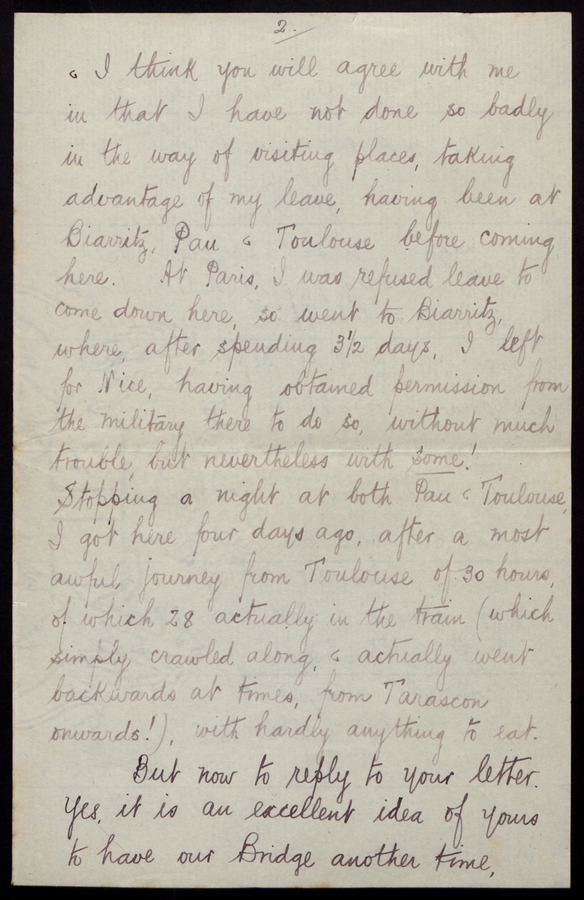 2.
& I think you will agree with me
in that I have not done so badly
in the way of visiting places, taking
advantage of my leave, having been at
Biarritz, Pau & Toulouse before coming
here. At Paris, I was refused leave to
come down here, so went to Biarritz,
where, after spending 3½ days, I left
for Nice, having obtained permission from
the military there to do so, without much
trouble, but nevertheless with some!
Stopping a night at both Pau & Toulouse,
I got here four days ago, after a most
awful journey from Toulouse of 30 hours,
of which 28 actually in the train (which
simply crawled along, & actually went
backwards at times, from Tarascon
onwards!), with hardly anything to eat.
But now to reply to your letter.
Yes, it is an excellent idea of yours
to have our Bridge another time,